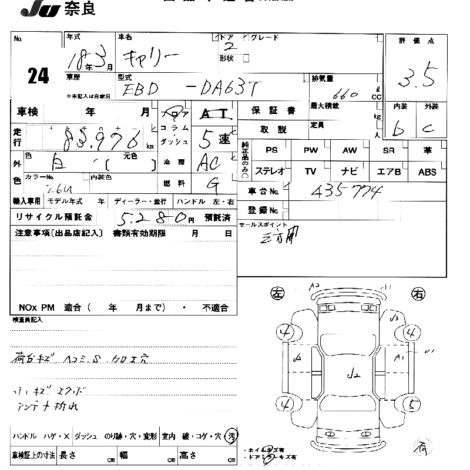 JU 奈良
No. 24
年式 18年3月
車名 キャリー
ドア 2 グレード
形状
評価点 3.5
車歴
※未記入は自家用
型式 EBD-DA63T
排気量 660 CC
最大積載 Kg
定員 人
内装 b 外装 c
車検 年 月
フロア コラム ダッシュ AT 5速
走行 83,976 km
保証書
取説
外色 白 ( 元色 )
冷房 AC
カラーNo. Z6U 内装色
燃料 G
純正品のみ○
PS PW AW SR 革
ステレオ TV ナビ エアB ABS
輸入車用 モデル年式 年 ディーラー・並行 ハンドル 左・右
車台No. 435774
リサイクル預託金 5,280円 預託済
登録No.
注意事項[出品店記入] 書類有効期限 月 日
セールスポイント
三方開
NOx PM 適合 ( 年 月まで ) ・ 不適合
検査員記入
左 右
A2 A1 A1
4 4 4 5
荷台キズ ヘコミ.S.
アンテナ折れ
ハンドル ハゲ・× ダッシュ のり跡・穴・変形 室内 破・コゲ・穴・汚
車検証上の寸法 長さ cm 幅 cm 高さ cm
・ホイールキズ有
・ドアミラーキズ有
有